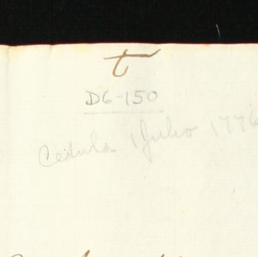 t
D6-150
Cedula 1 Julio 1776